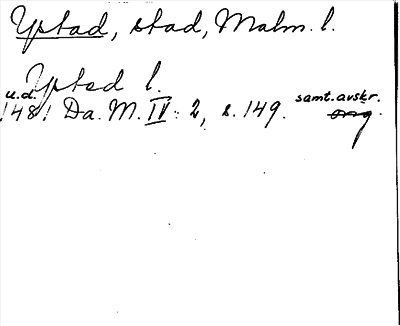 Ystad, stad, Malm. l.
Ystad l.
u.d. samt. avskr.
1481 Da. M. IV: 2, s. 149. orig.